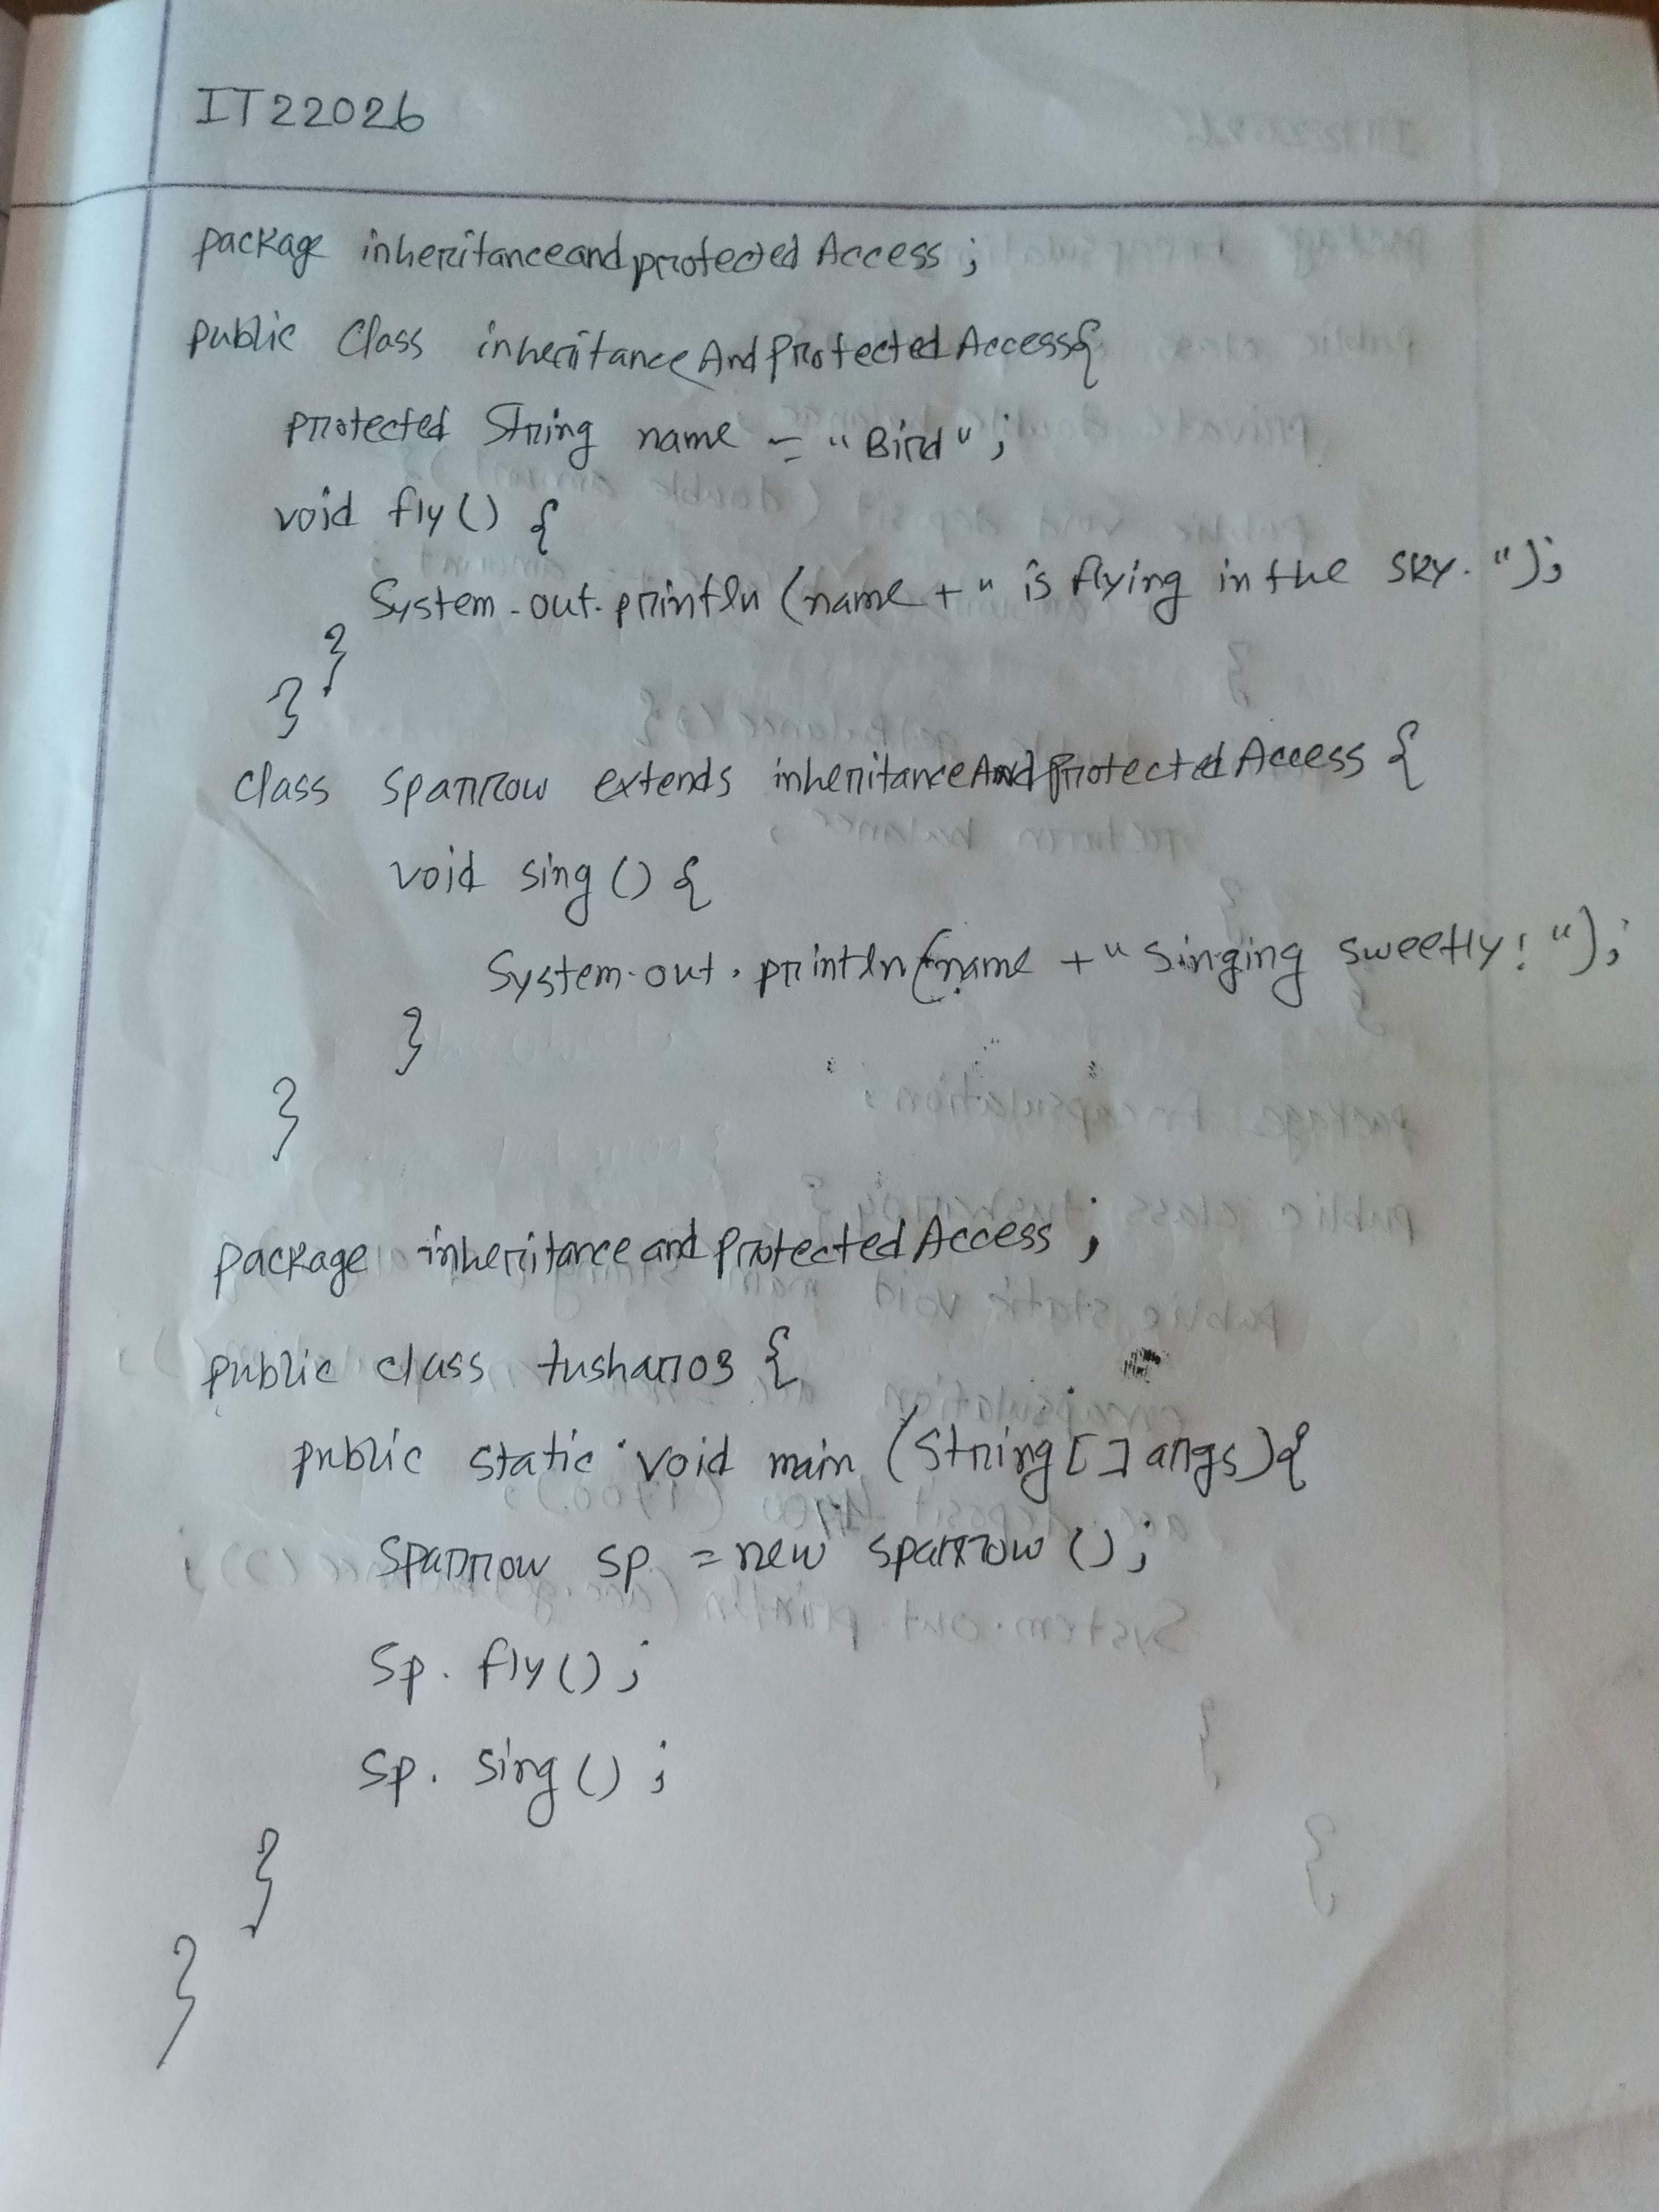 IT22026
package inheritanceandprotectedAccess;
public class inheritanceAndProtectedAccess{
protected String name = "Bird";
void fly() {
System.out.println (name + " is flying in the sky. ");
}
}
class sparrow extends inheritanceAndProtectedAccess {
void sing () {
System.out.println(name + " singing sweetly! ");
}
}
package inheritanceandProtectedAccess;
public class tushar03 {
public static void main (String[] args){
sparrow sp = new sparrow ();
sp. fly();
sp. sing();
}
}